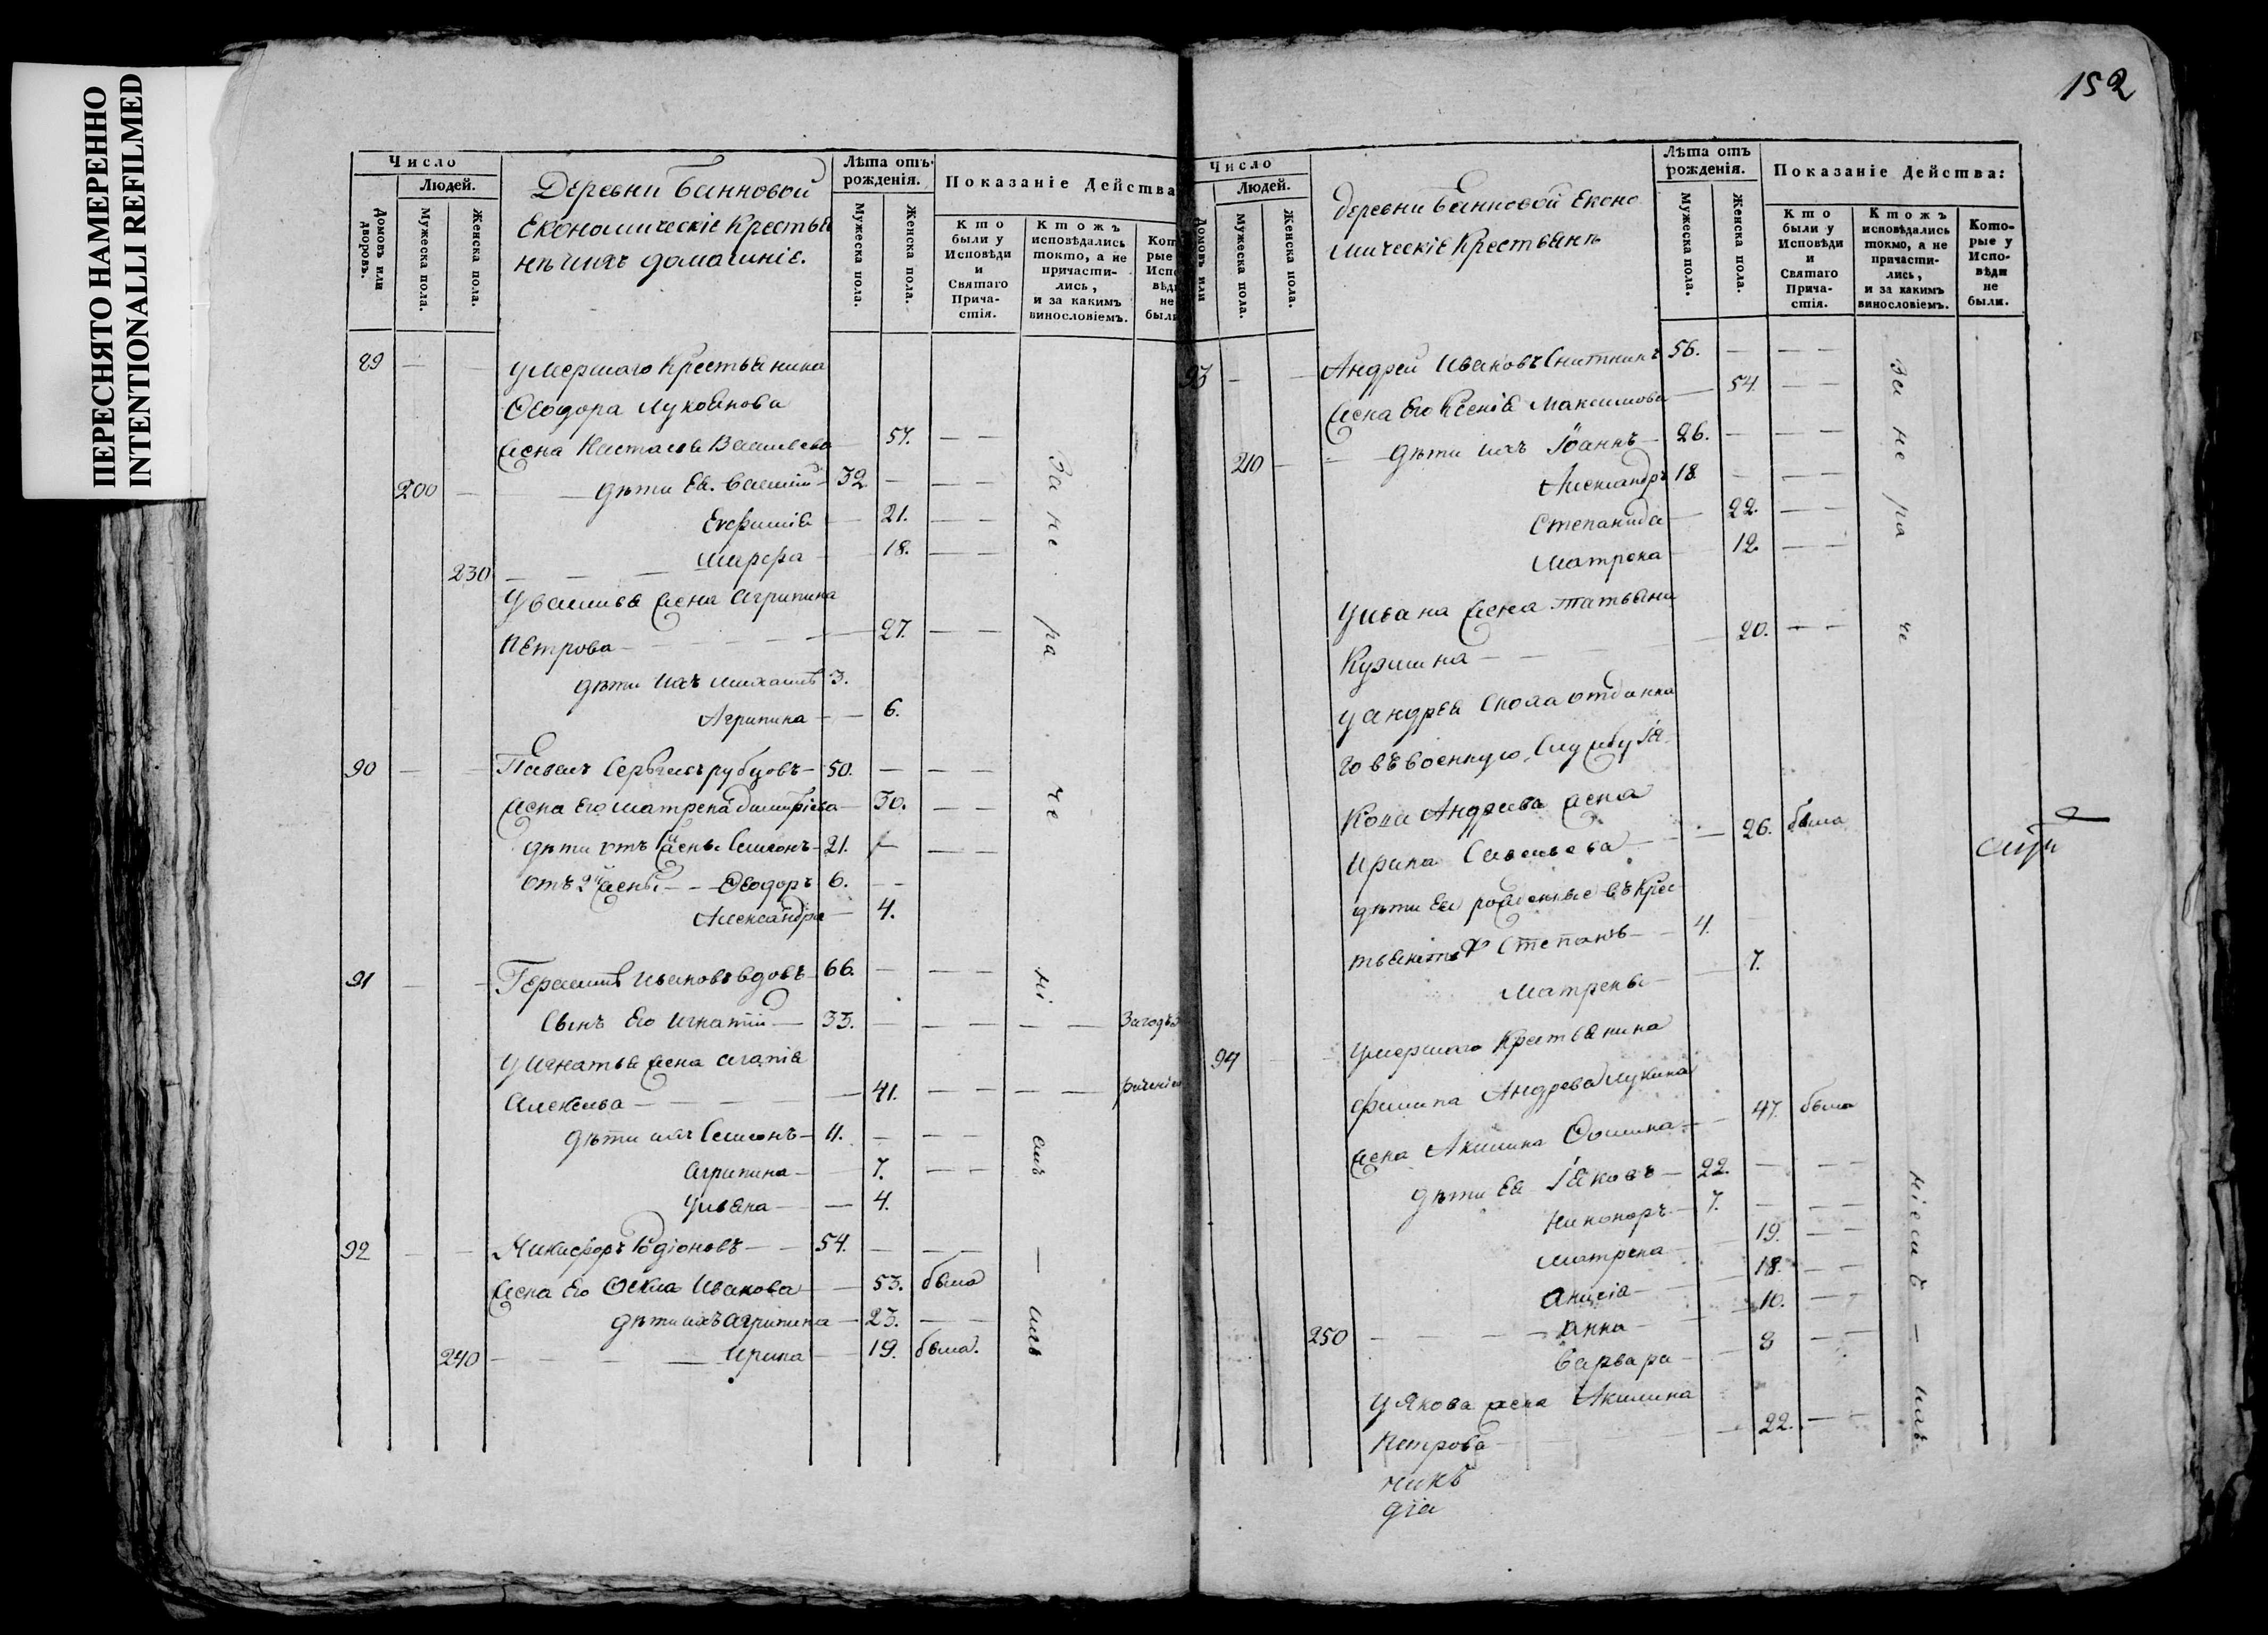 ПЕРЕСНЯТО НАМЕРЕННО
INTENTIONALLI REFILMED
152
Число
Людей.
Домовъ или дворовъ.
Мужеска пола.
Женска пола.
Деревни Банновой
Економическіе Крестья
не ихъ домашніе.
Лѣта отъ рожденія.
Мужеска пола.
Женска пола.
Показаніе Действа
Кто были у Исповѣди и Святаго Причастія.
Ктожъ исповѣдались токто, а не причастились, и за какимъ винословіемъ.
89 — — умершаго Крестьянина
Ѳеодора Лукоянова
жена Настасья Васильева — 57. — —
200 — — дѣти Ея. Василій — 32 — — —
Евфимія — 21. — —
Марфа — 18. — —
230 — — —
У Василья жена Агрипина
Петрова — 27. — —
дѣти ихъ Михаилъ 3.
Агрипина — — 6.
90 — — Павелъ Сергеевъ рубцовъ — 50. — — —
жена Его Матрена Димитріева — 30. — —
дѣти отъ 1й жены Симионъ — 21. — — —
отъ 2й жены — — Ѳеодоръ 6. — —
Александра — 4.
91 — — Герасимъ Ивановъ вдовъ 66. — — —
Сынъ Его Игнатій — 33. — — — — —
У Игнатья жена Агапія
Алексеева — — — — 41. — — — —
дѣти ихъ Симионъ — 11. — — —
Агрипина — — 7. — —
Ульяна — — 4.
92 — — Никифоръ Родіоновъ — — 54. — — —
жена Его Ѳекла Иванова — — 53. была
дѣти ихъ Агрипина — 23. — —
240 — — — — Ирина — 19. была.
За не ра че ні емъ — имъ
Число
Людей.
Домовъ или
Мужеска пола.
Женска пола.
деревни Банновой Еконо
мическіе Крестьяне
Лѣта отъ рожденія.
Мужеска пола.
Женска пола.
Показаніе Действа:
Кто были у Исповѣди и Святаго Причастія.
Ктожъ исповѣдались токмо, а не причастились, и за какимъ винословіемъ.
Которые у Исповѣди не были.
93 — — Андрей Ивановъ 56. — — —
жена Его Ксенія Максимова — 54. — —
210 — — дѣти ихъ Іоаннъ — 26. — — —
Александръ 18. — — —
Степанида — 22. — —
Матрена — 12. — —
У Ивана жена Татьяна
Кузмина — — — 20. — —
У Андрея Снохи отданна
го въ военную Службу Іа
кова Андреева жена
Ирина Савельева — — 26. была
дѣти Ея рожденные въ Крес
тьянстве Степанъ — — 4.
Матрена — — 7.
94 — умершаго Крестьянина
Филипа Андреева Лукина
жена Акилина Ѳомина — — 47. была
дѣти Ея Іаковъ — 22. — — —
Никоноръ — 7. — — —
Матрена — 19. — —
Анисія — 18. — —
250 — — — — Анна — 10. — —
Варвара — — 8 — —
У Якова жена Акилина
Петрова — — 22. — —
За не ра че ніемъ — имъ
чикъ
діа